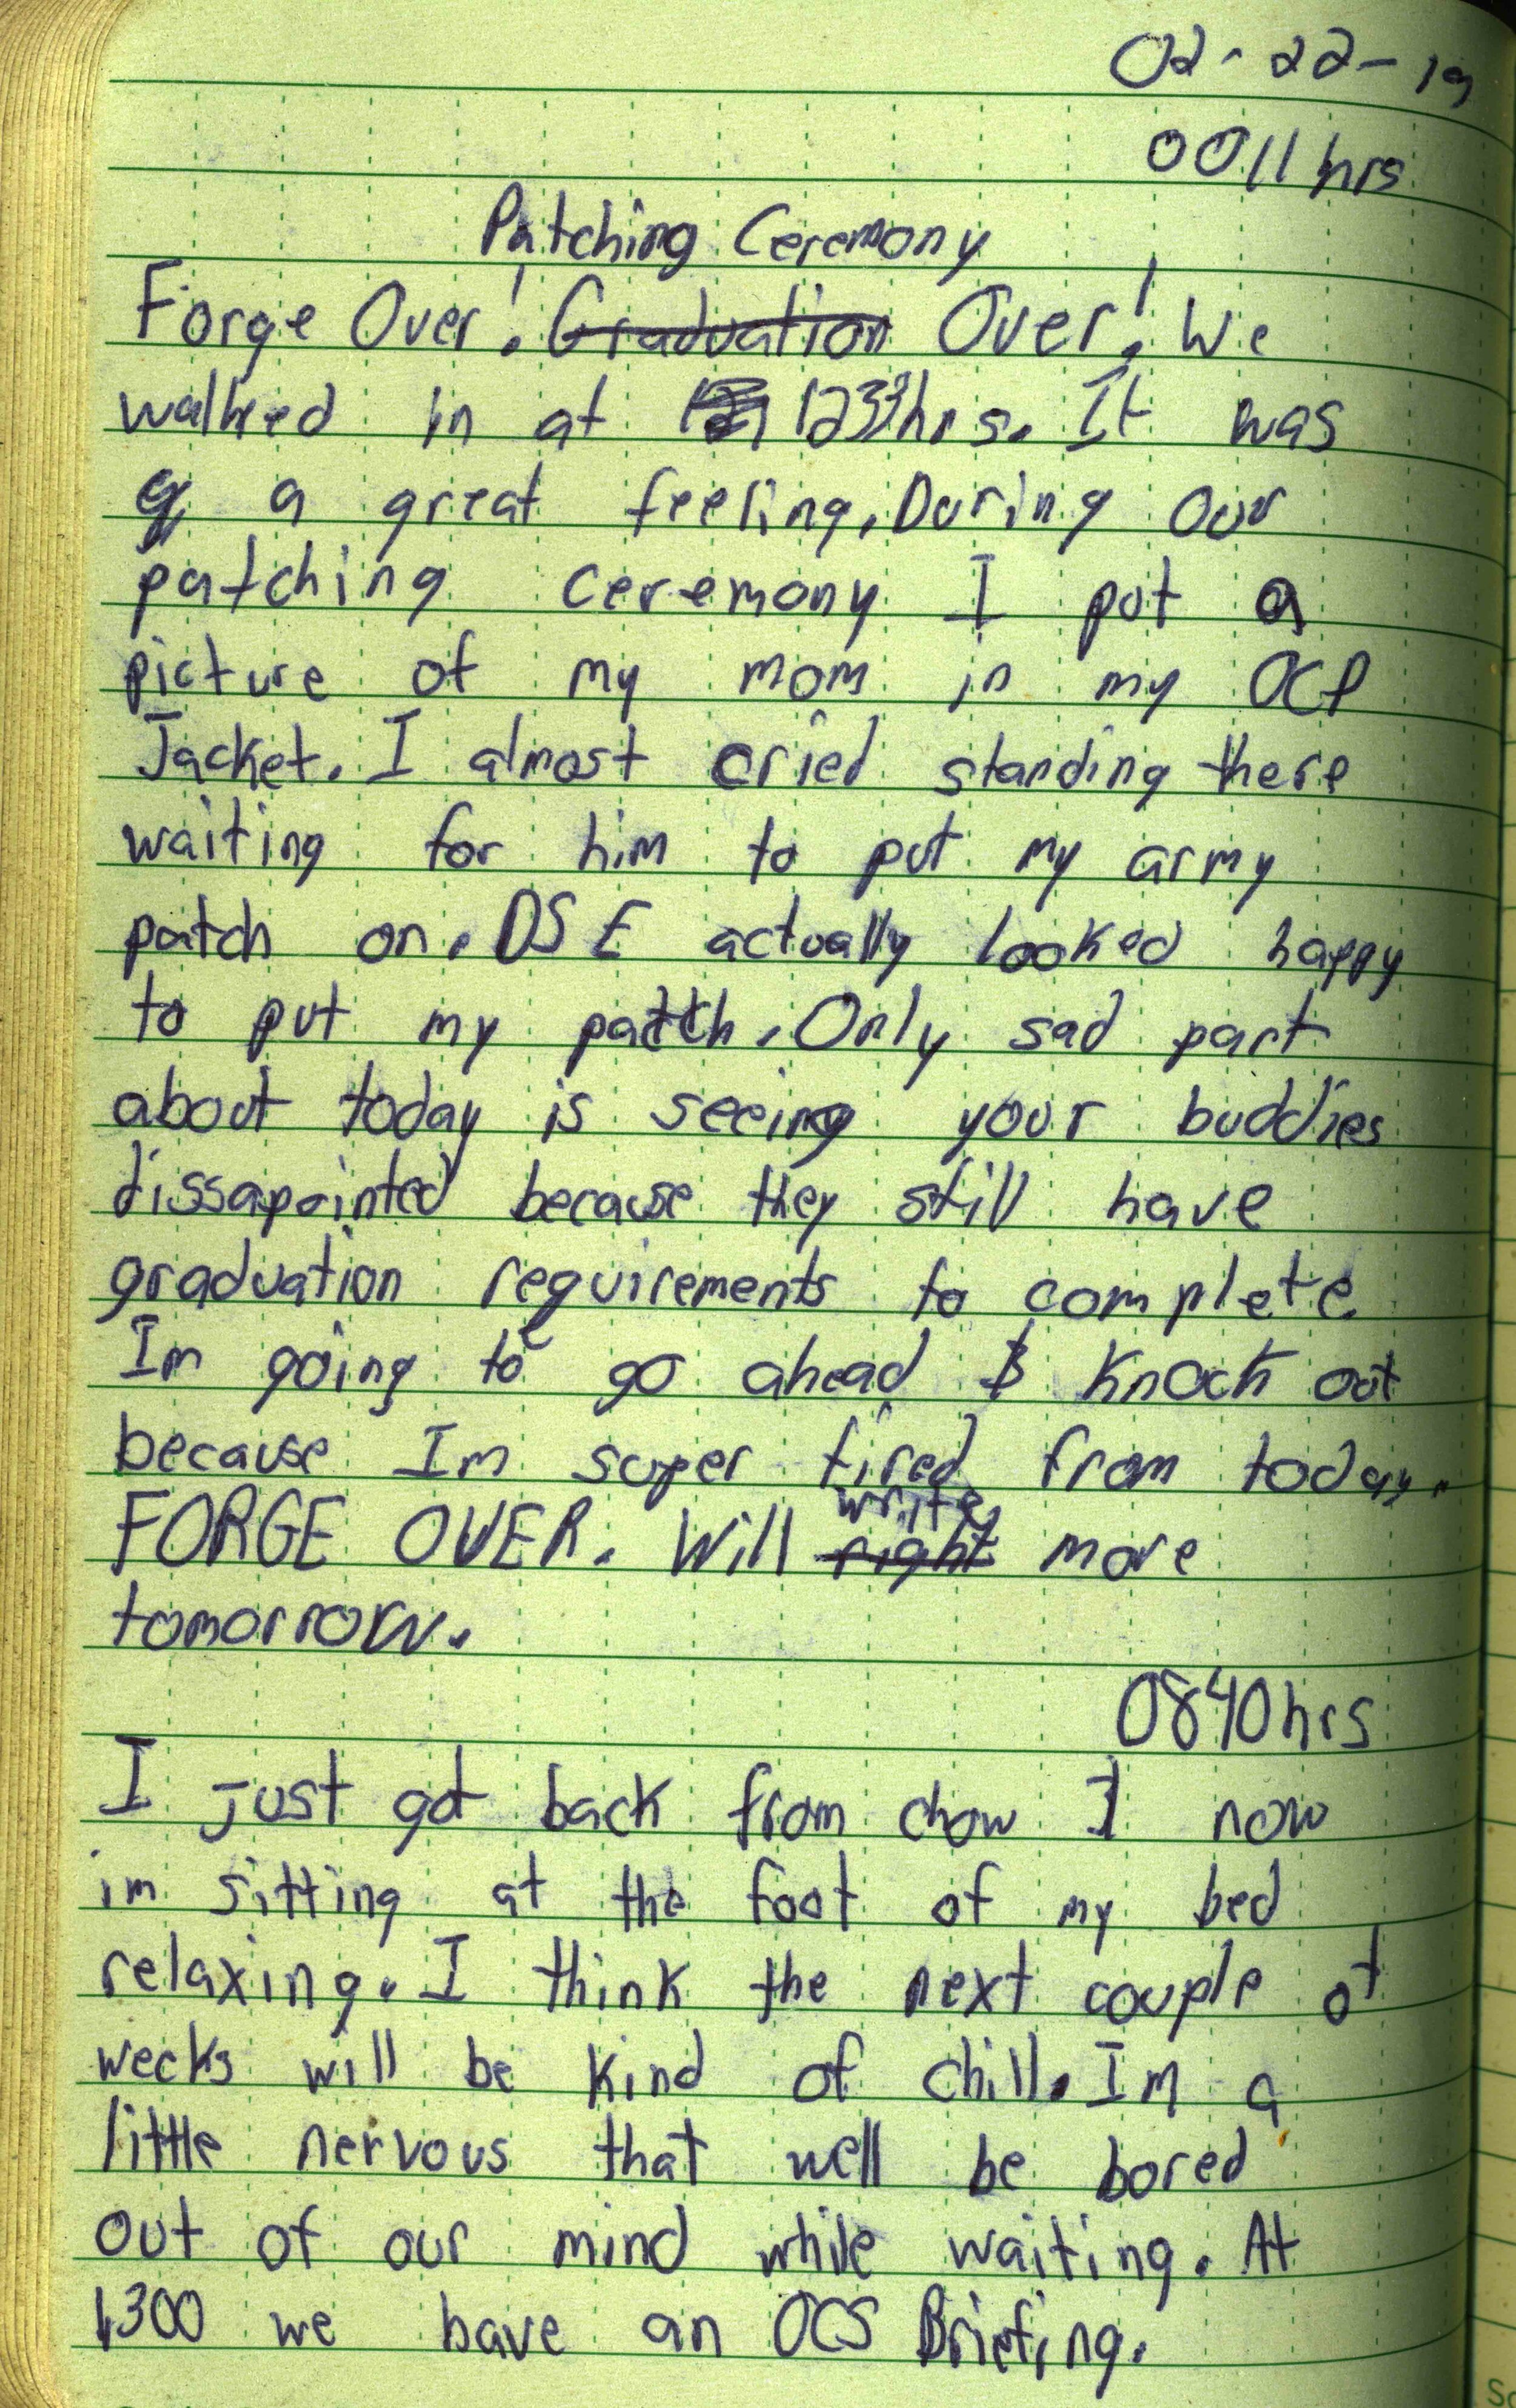 02-22-19
0011 hrs
Patching Ceremony
Forge Over! Graduation Over! We
walked in at 1233hrs. It was
a great feeling. During our
patching ceremony I put a
picture of my mom in my OCP
Jacket. I almost cried standing there
waiting for him to put my army
patch on. DS E actually looked happy
to put my patch. Only sad part
about today is seeing your buddies
dissapointed because they still have
graduation requirements to complete.
Im going to go ahead & knock out
because Im super tired from today.
FORGE OVER. Will right write more
tomorrow.
0840hrs
I just got back from chow & now
im sitting at the foot of my bed
relaxing. I think the next couple of
weeks will be kind of chill. Im a
little nervous that well be bored
out of our mind while waiting. At
1300 we have an OCS Briefing.